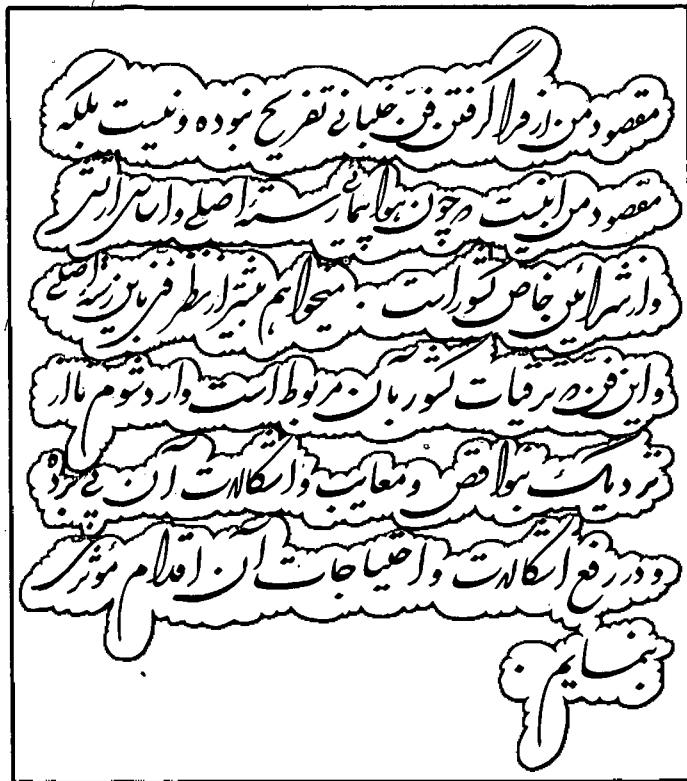 مقصود من از فرا گرفتن فن خلبانی تفریح نبوده و نیست بلکه
مقصود من اینست که چون هواپیمائی رسته اصلی و اساسی ارتش
و از شرائین خاص کشور است . میخواهم بیشتر از نظر فنی باین رسته اصلی
و این فن که ترقیات کشور بآن مربوط است وارد شوم تا از
نزدیک بنواقص و معایب و اشکالات آن پی برده
و در رفع اشکالات و احتیاجات آن اقدام مؤثری
بنمایم .